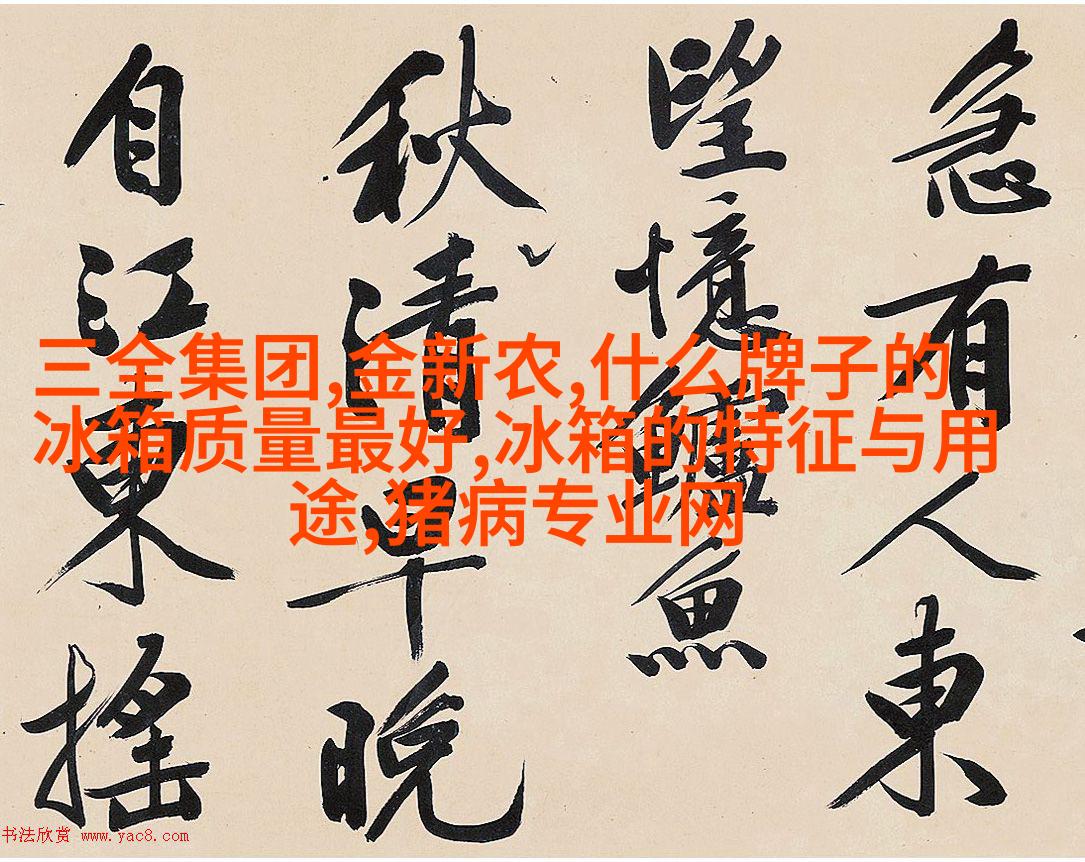 急有人東
望憶鱸魚
秋清早晚
自江東搖
三全集团,金新农,什么牌子的
冰箱质量最好,冰箱的特征与用
途,猪病专业网
书法欣赏 www.yac8.com